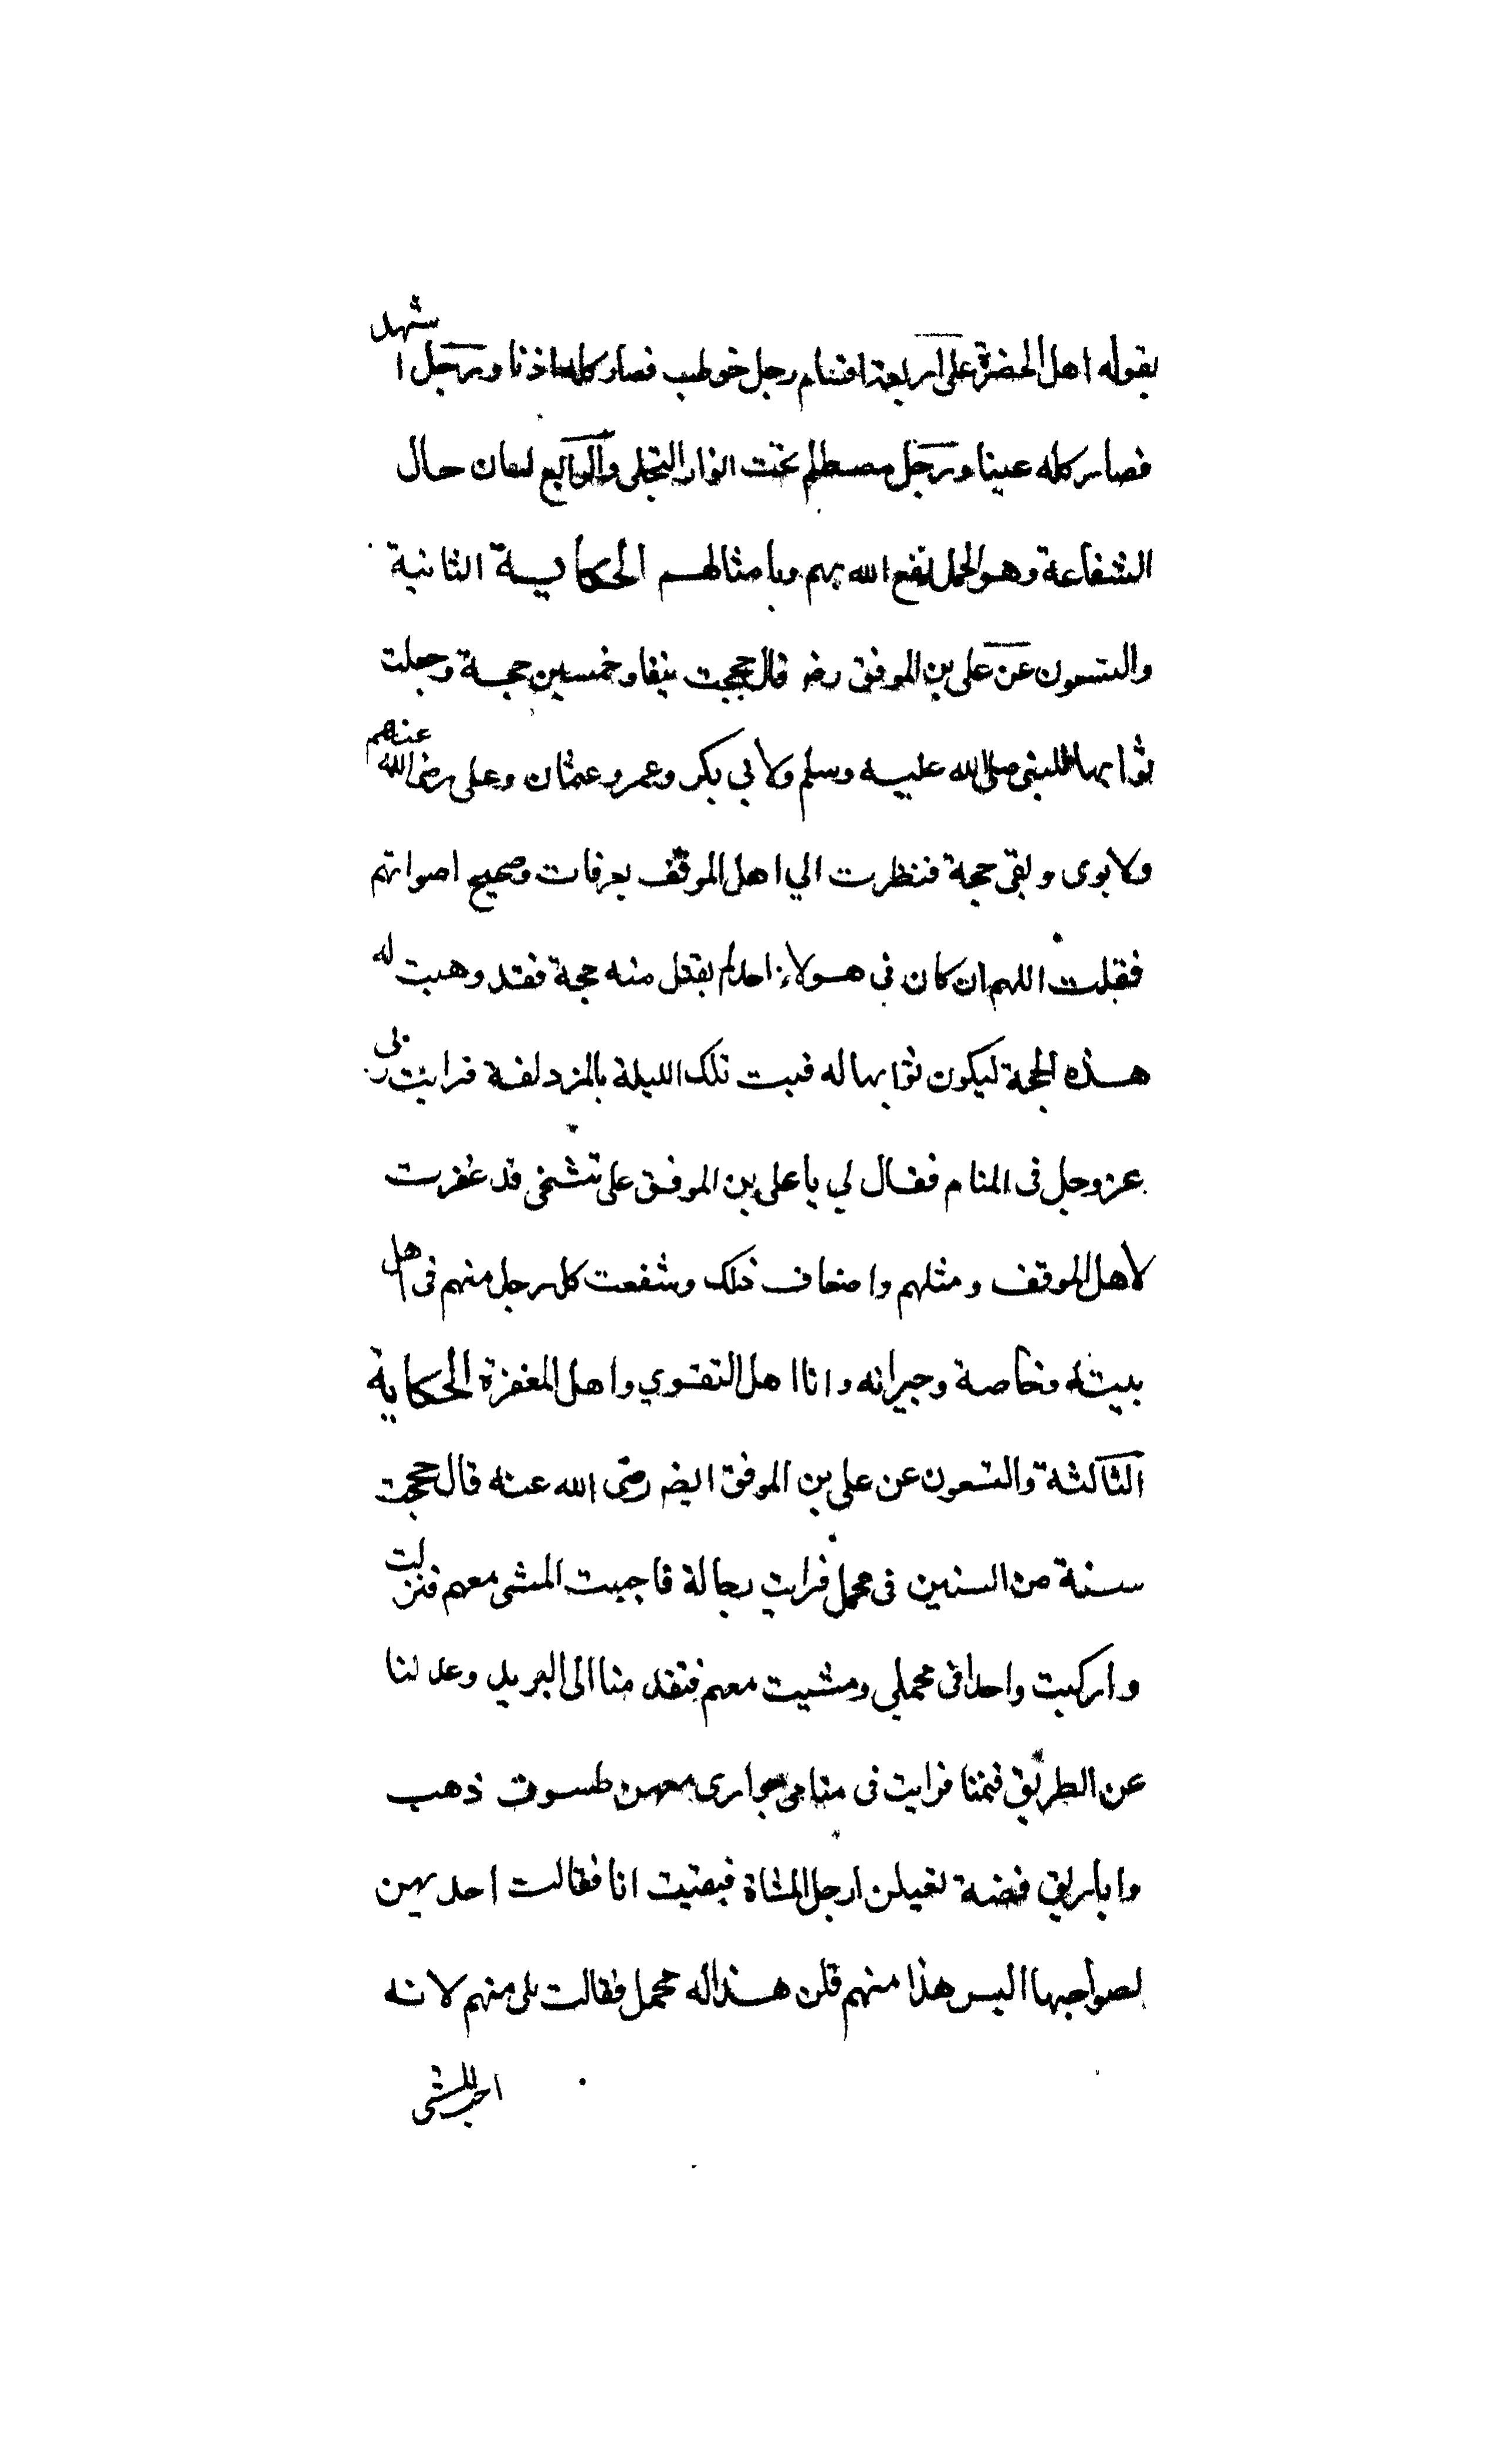 بقوله اهل الحضرة على اربعة اقسام رجل خوطب فصار كله اذنا ورجل اشهد
فصار كله عينا ورجل مصطلم تحت انوار التجلى والرابع لسان حال
الشفاعة وهو اكمل نفع الله بهم وبامثالهم الحكاية الثانية
والتسعون عن على بن الموفق رضه قال حججت نيفا وخمسين حجة وجعلت
ثوابها للنبي صلى الله عليه وسلم ولابي بكر وعمر وعثمان وعلى رضى الله عنهم
ولابوى وبقى حجة فنظرت الي اهل الموقف بعرفات وضجيج اصواتهم
فقلت اللهم ان كان فى هولاء احد لم يقبل منه حجة فقد وهبت له
هذه الحجة ليكون ثوابها له فبت تلك الليلة بالمزدلفة فرايت ربى
عز وجل فى المنام فقال لي يا على بن الموفق على تتسخى قد غفرت
لاهل الموقف ومثلهم واضعاف ذلك وشفعت كل رجل منهم فى اهل
بيته وخاصة وجيرانه وانا اهل التقوي واهل المغفرة الحكاية
الثالثة والتسعون عن على بن الموفق ايضه رضى الله عنه قال حججت
سنة من السنين فى محمل فرايت رجالة فاحببت المشى معهم فنزلت
واركبت واحدا فى محملى ومشيت معهم فتقدمنا الى البريد وعدلنا
عن الطريق فنمنا فرايت فى منامى جوارى معهن طسوت ذهب
واباريق فضة تغسلن ارجل المشاة فبقيت انا فقالت احديهن
لصواحبها اليس هذا منهم قلن هذا له محمل فقالت بلى منهم لانه
احب المشى